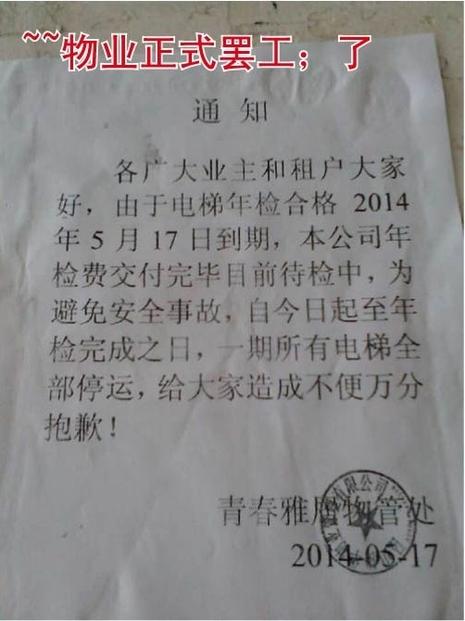 ~~物业正式罢工；了
通知
各广大业主和租户大家
好，由于电梯年检合格 2014
年 5 月 17 日到期，本公司年
检费交付完毕目前待检中，为
避免安全事故，自今日起至年
检完成之日，一期所有电梯全
部停运，给大家造成不便万分
抱歉！
青春雅居物管处
有限公司
2014-05-17